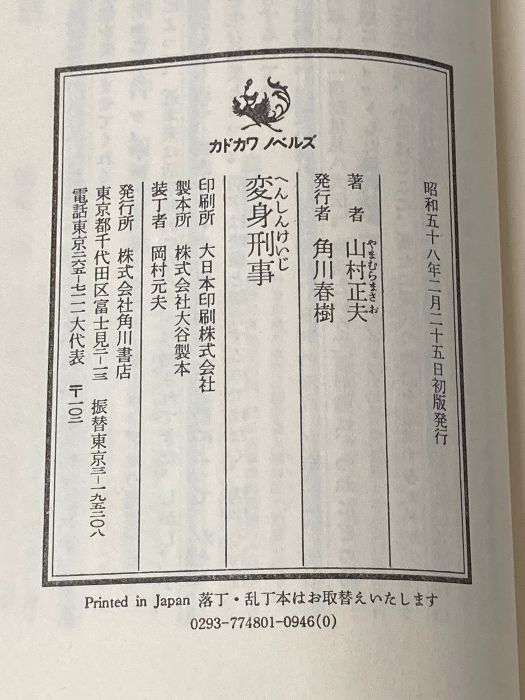 カドカワ ノベルズ
昭和五十八年二月二十五日初版発行
著者 山村正夫
やまむらまさお
発行者 角川春樹
変身刑事
へんしんけいじ
印刷所 大日本印刷株式会社
製本所 株式会社大谷製本
装丁者 岡村元夫
発行所 株式会社角川書店
東京都千代田区富士見二―一三 振替東京三―一九五二〇八
電話東京二六五―七一一一大代表 〒一〇二
Printed in Japan 落丁・乱丁本はお取替えいたします
0293-774801-0946(0)